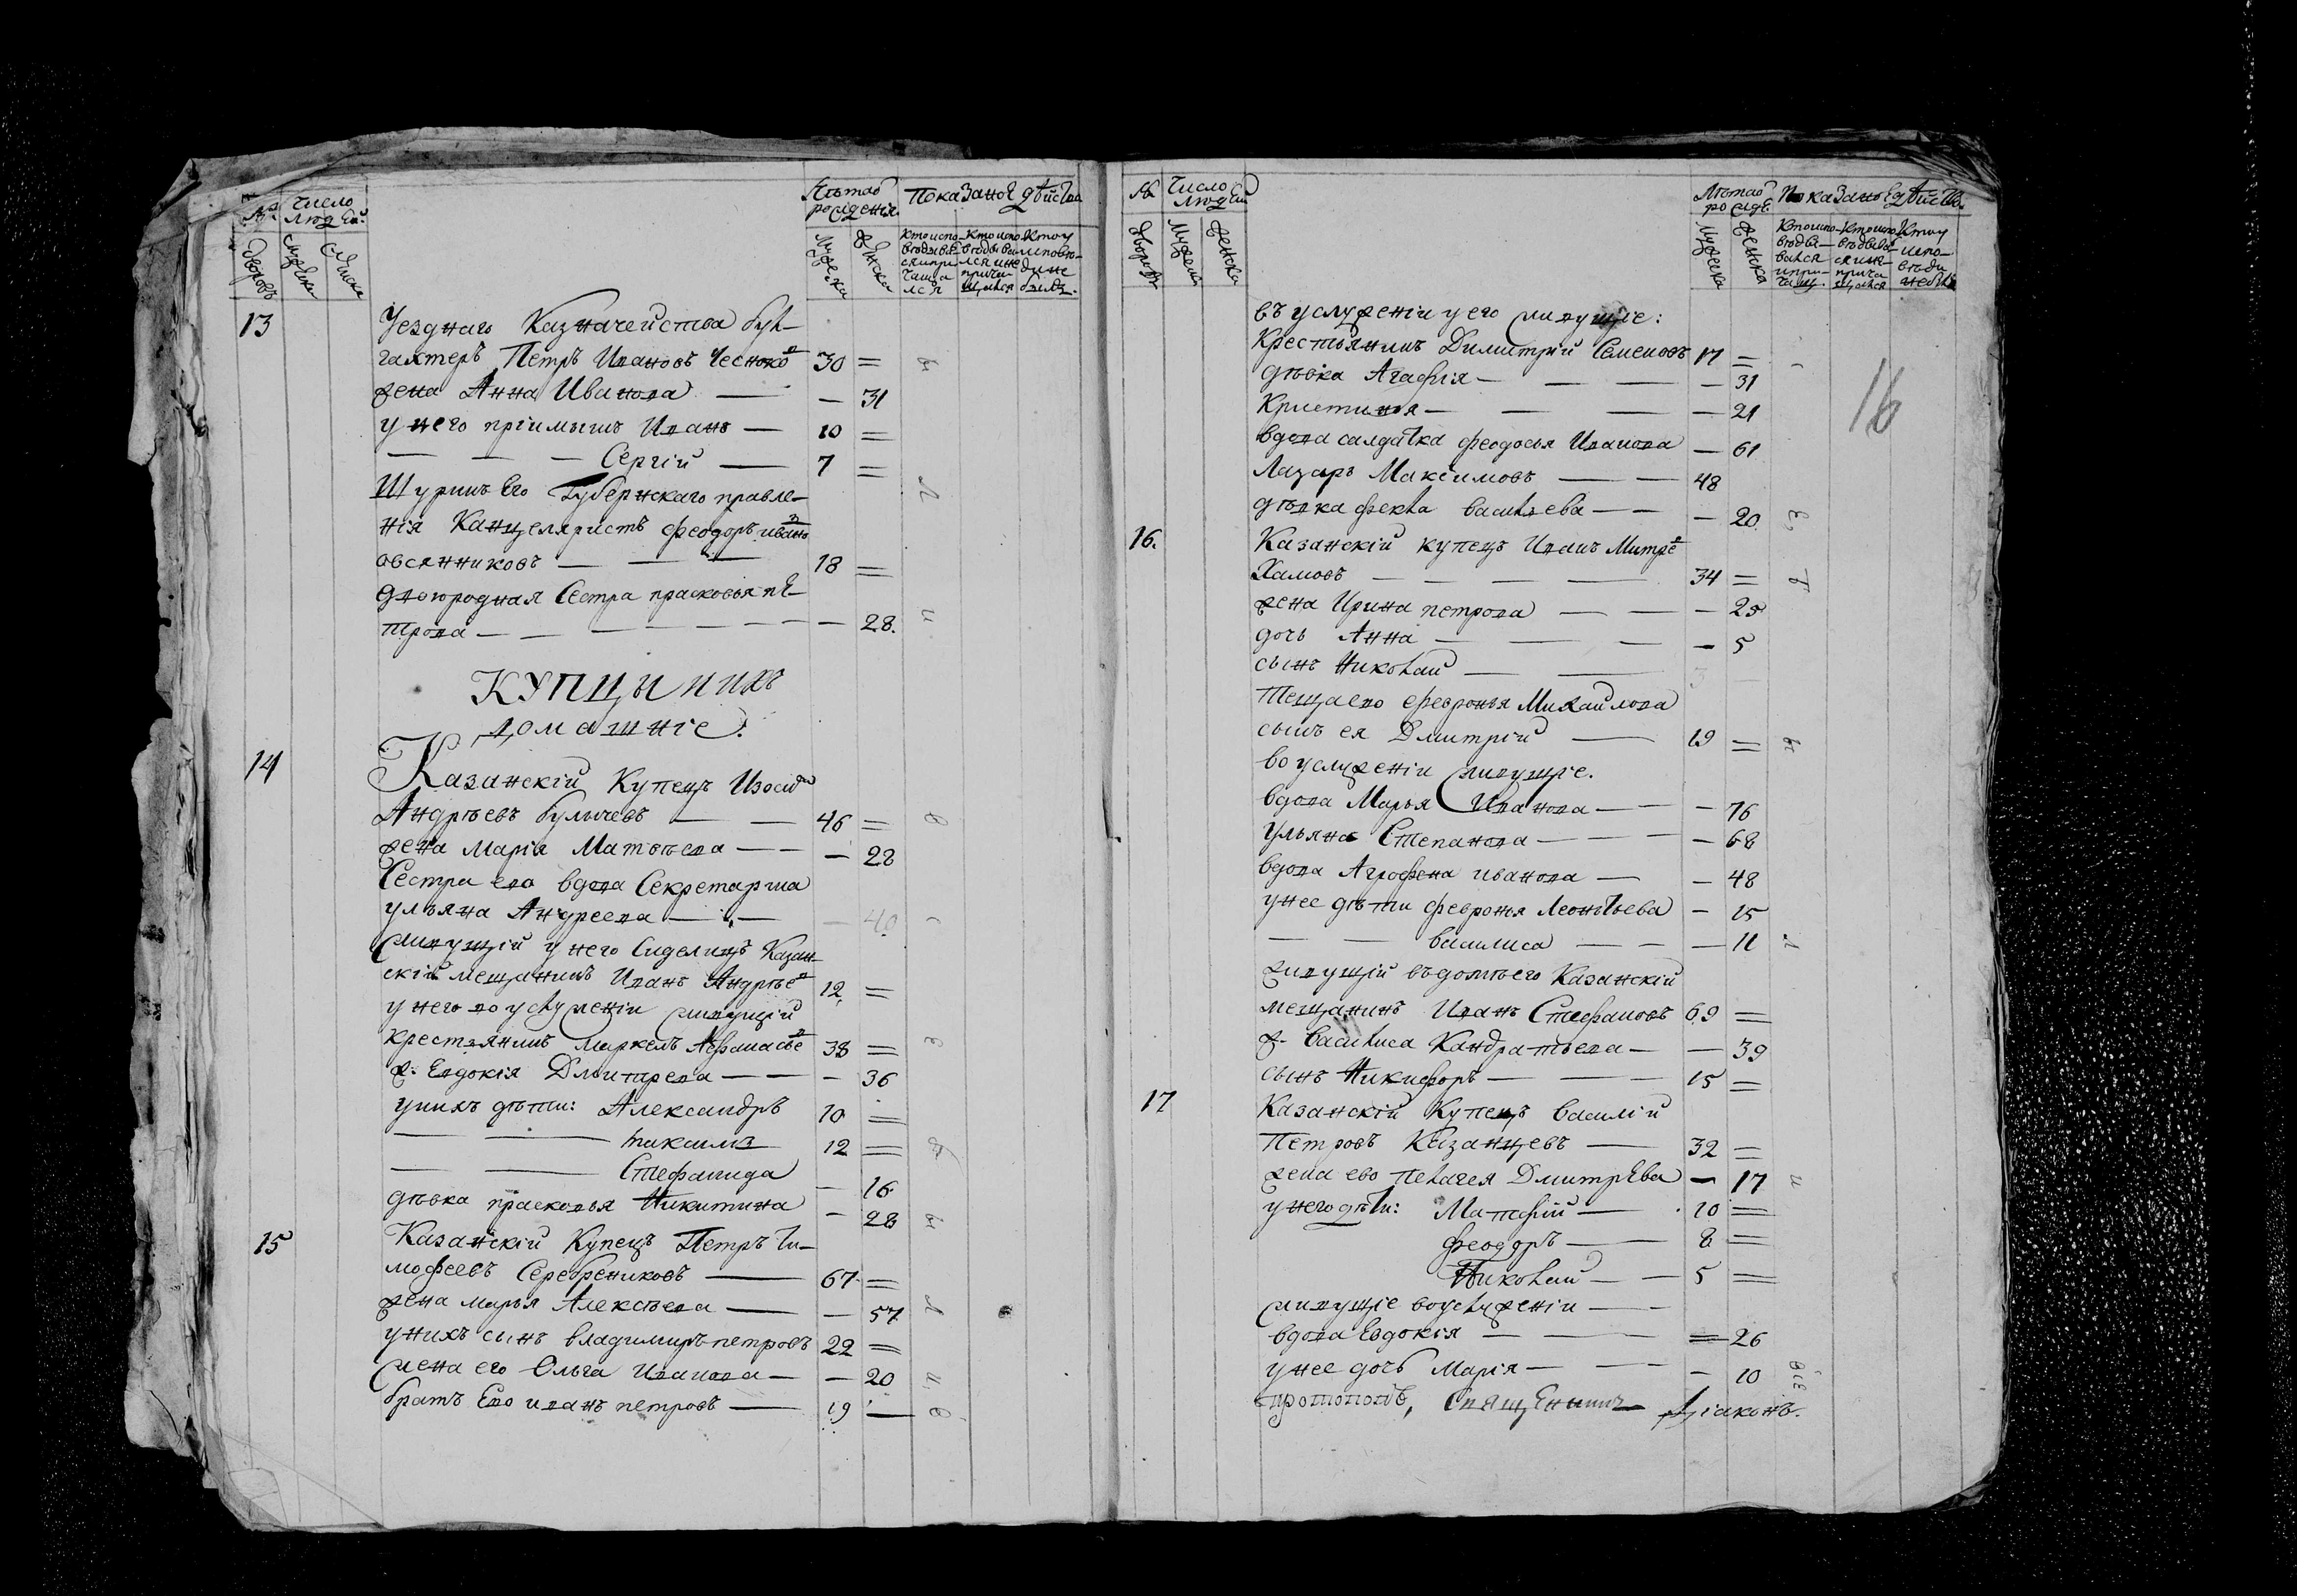 №
Число людей.
Лѣта от рожденія
Показаное дѣйства
дворовъ
мужеска
женска
мужеска
женска
Кто испо-
вѣдыва
ся и при
чаща
лся
Кто испо
вѣдыва
лся и не
прича
щался
Кто у
исповѣ-
ди не
былъ.
13
Уезднаго Казначейства бух-
галтеръ Петръ Ивановъ Чесноков 30 =
жена Анна Иванова — — 31
у него пріимышъ Иванъ — 10 =
— — — Сергій — 7 =
Шуринъ Его Губернскаго правле-
нія Канцеляристъ Феодоръ иванов
овсянниковъ — — — 18 =
Двоюродная Сестра прасковья пе-
трова — — — — — 28.
КУПЦЫ И ИХЪ
домашніе.
14
Казанскій Купецъ Изоси
Андрѣевъ булычевъ — — 46 =
жена Марія Матвѣева — — — 28
Сестра ево вдова Секретарша
ульяна Андреева — — — 40
Живущій у него Сиделецъ Казан-
скій мещанинъ Иванъ Андрѣев 12 =
у него во услуженіи живущій
Крестьянинъ Маркелъ Афанасьев 38 =
ж. Евдокія Дмитрева — — — 36
у нихъ дѣти: Александръ 10 =
— — максимъ 12 =
— — Стефанида — 16
дѣвка прасковья Никитина — 28
15
Казанскій Купецъ Петръ Ти-
мофеевъ Серебрениковъ — 67. =
жена марья Алексѣева — — 57
у нихъ сынъ владимиръ петровъ 22 =
жена его Ольга Иванова — — 20
братъ Ево иванъ петровъ — 19 —
№
Число людей
Лѣта от рожде.
Показаное дѣйства.
дворовъ
мужеска
женска
мужеска
женска
Кто испо-
вѣды-
вался
и при-
чащ.
Кто испо
вѣдывал
ся и не
прича
щался
Кто у
испо-
вѣди
не был
16
въ услуженіи у его живущіе:
Крестьянинъ Димитрій Семеновъ 17 =
дѣвка Агафія — — — — 31
Кристинья — — — — 21
вдова салдатка феодосья Иванова — 61
Лазарь Максимовъ — — 48
дѣвка фекла васильева — — — 20.
16.
Казанскій купецъ Иванъ Митрев
Хамовъ — — — — 34 =
жена Ирина петрова — — — 25
дочь Анна — — — — 5
сынъ Николай — —
теща ево февронья Михайлова
сынъ ея Дмитрій — 19 =
во услуженіи живущіе.
вдова Марья Иванова — — — 76
Ульяна Степанова — — — 68
вдова Аграфена иванова — — 48
у нее дѣти февронья Леонтьева — 15
— — василиса — — — 11
живущій въ домѣ его Казанскій
мещанинъ Иванъ Стефановъ 69 =
ж. василиса Кандратьева — — 39
сынъ Никифоръ — — 15 =
17
Казанскій Купецъ василій
Петровъ Казанцевъ — 32 =
жена ево пелагея Дмитрева — 17
у него дѣти: Матфій — 10 =
феодоръ — 8 =
Николай — — 5 =
живущіе во услуженіи — —
вдова Евдокія — — = 26
у нее дочь Марія — — — 10
протопопъ, Священникъ Діаконъ.